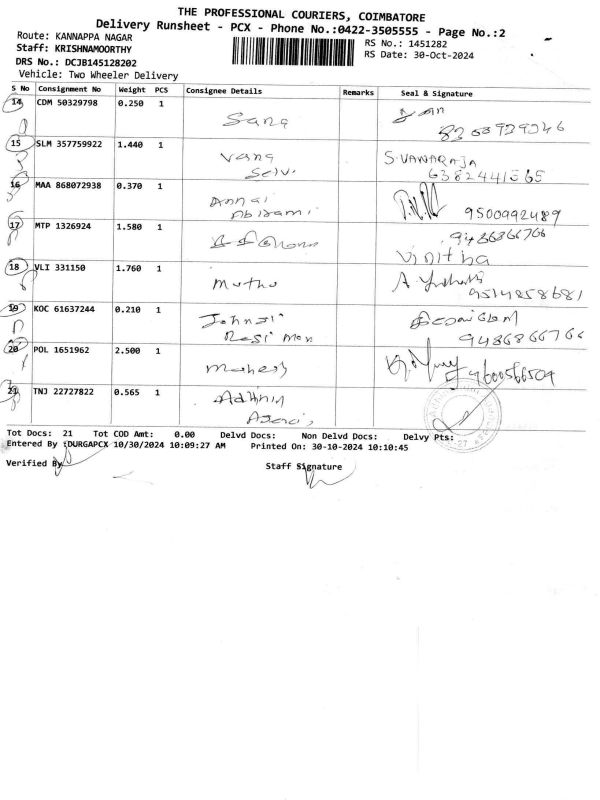 THE PROFESSIONAL COURIERS, COIMBATORE
Delivery Runsheet - PCX - Phone No.:0422-3505555 - Page No.:2
Route: KANNAPPA NAGAR
RS No.: 1451282
Staff: KRISHNAMOORTHY
RS Date: 30-Oct-2024
DRS No.: DCJB145128202
Vehicle: Two Wheeler Delivery
S No Consignment No Weight PCS Consignee Details Remarks Seal & Signature
14 CDM 50329798 0.250 1
Sana
15 SLM 357759922 1.440 1 Vana S.VANARAJA
Selvi 6382441565
16 MAA 868072938 0.370 1 Annai
Abirami 9500992489
17 MTP 1326924 1.580 1 9486866766
Vinitha
18 VLI 331150 1.760 1 Muthu A.
9514858681
19 KOC 61637244 0.210 1 Johnsi
Rasi Man 9486866766
20 POL 1651962 2.500 1 Mahesh 9600566504
21 TNJ 22727822 0.565 1
Tot Docs: 21 Tot COD Amt: 0.00 Delvd Docs: Non Delvd Docs: Delvy Pts:
Entered By :DURGAPCX 10/30/2024 10:09:27 AM Printed On: 30-10-2024 10:10:45
Verified By Staff Signature